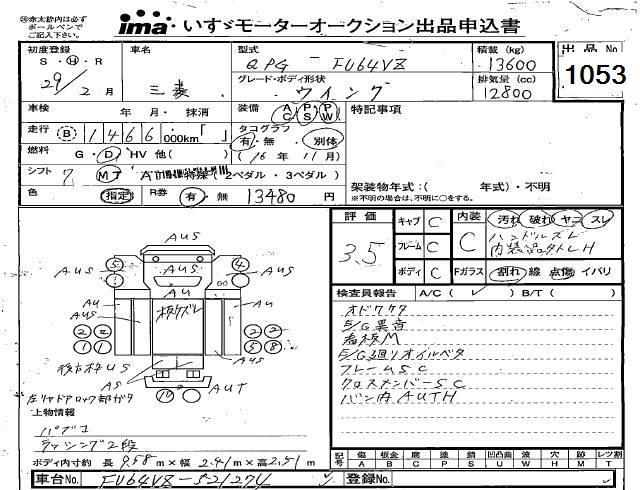 ※赤太枠内は必ず
ボールペンで
ご記入下さい。
ima いすゞモーターオークション出品申込書
初度登録 S・H・R 29年 2月
車名 三菱
型式 QPG - FU64VZ
積載 (kg) 13600
出品No 1053
グレード・ボディ形状 ウイング
排気量 (cc) 12800
車検 年・月・抹消
装備 AC PS PW
特記事項
走行 B 1466 000km「 」
タコグラフ 有・無 別体
燃料 G・D・HV 他( )
(16年 11月)
シフト 7 MT AT 特殊 (2ペダル・3ペダル)
架装物年式:( 年式)・不明
※不明の場合は、不明に○をする。
色 指定 R券 有・無 13480円
評価 3.5
キャブ C
内装 C
汚れ 破れ ヤニ スレ
フレーム C
ハンドルズレ
ボディ C
Fガラス 割れ 線 点傷 イバリ
検査員報告 A/C( ✓ ) B/T( )
オドワケタ
E/G異音
看板M
E/G廻りオイルベタ
フレームSC
クロスメンバーSC
バン内AUTH
AUS
AUS
AU
AUS
AUS
AU
AUS
AU
板ズレ
後方枠US
AS
AS
AUT
左リヤドアロック部ガタ
上物情報
パブコ
ラッシング2段
ボディ内寸約 長9.58m×幅2.41m×高2.51m
記号 傷A 板金B 腐C 塗P 錆S 凹凸曲U 波W 穴H 跡M レツ割T
車台No. FU64VZ-521274
登録No.